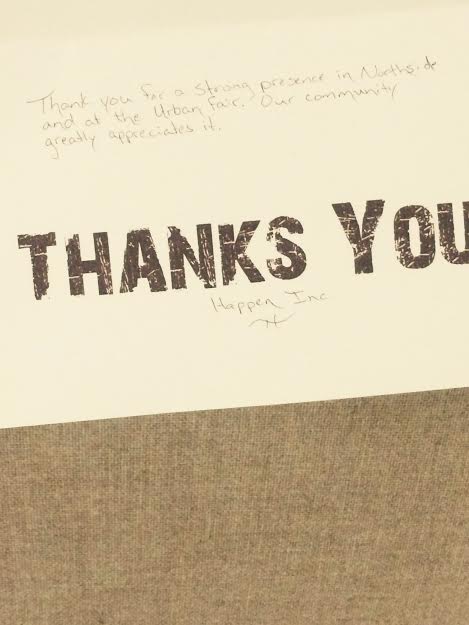 Thank you for a strong presence in Northside
and at the Urban Fair. Our community
greatly appreciates it.
THANKS YOU
Happen Inc